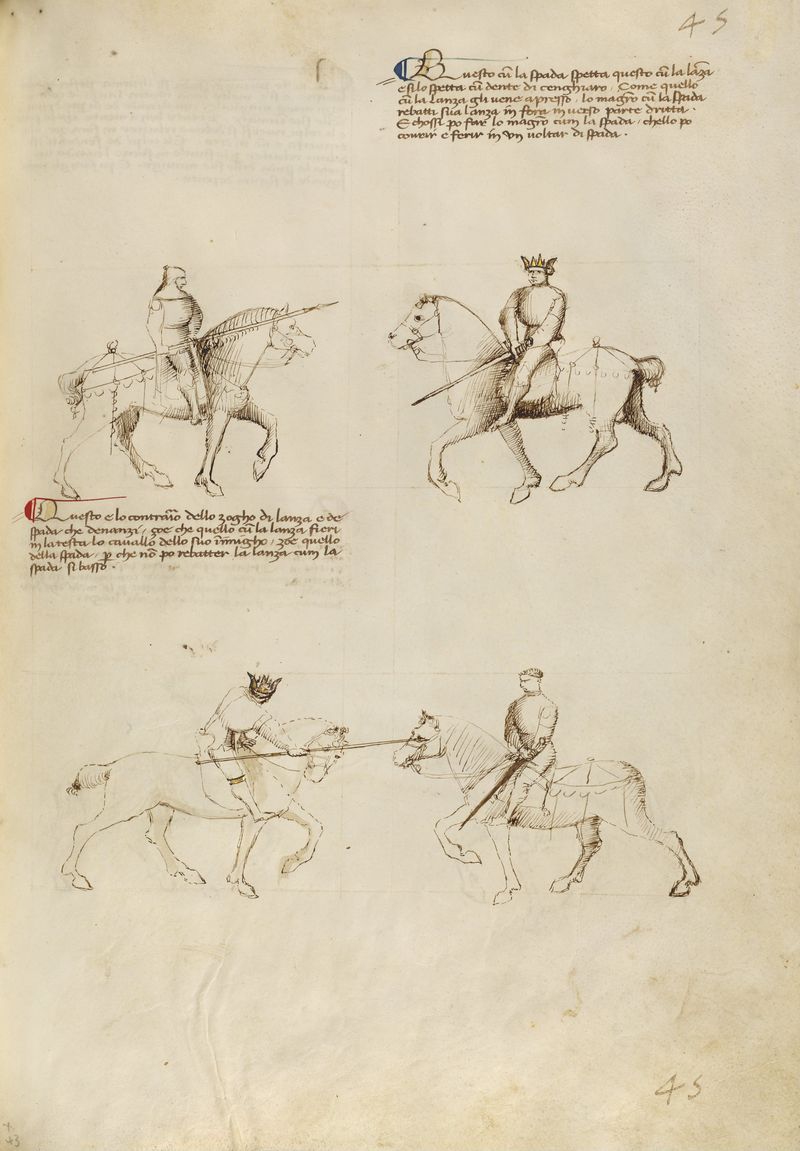 45
Questo cū la spada spetta questo cū la lāza
e si lo spetta cū dente di cenghiaro, Come quello
cū la lanza gli vene apresso, lo magr̄o cū la spada
rebatti sua lanza in fora inverso parte dritta.
E chossi po far lo magr̄o cum la spada, chello po
covrir e ferir in un voltar di spada.
Questo e lo contrar̄io dello zogho di lanza e de
spada che denanzi, çoe che quello cū la lanza fieri
in la testa lo cavallo dello suo īnimigho, zoe quello
della spada, ꝑ che nō po rebatter la lanza cum la
spada si basso.
45
43